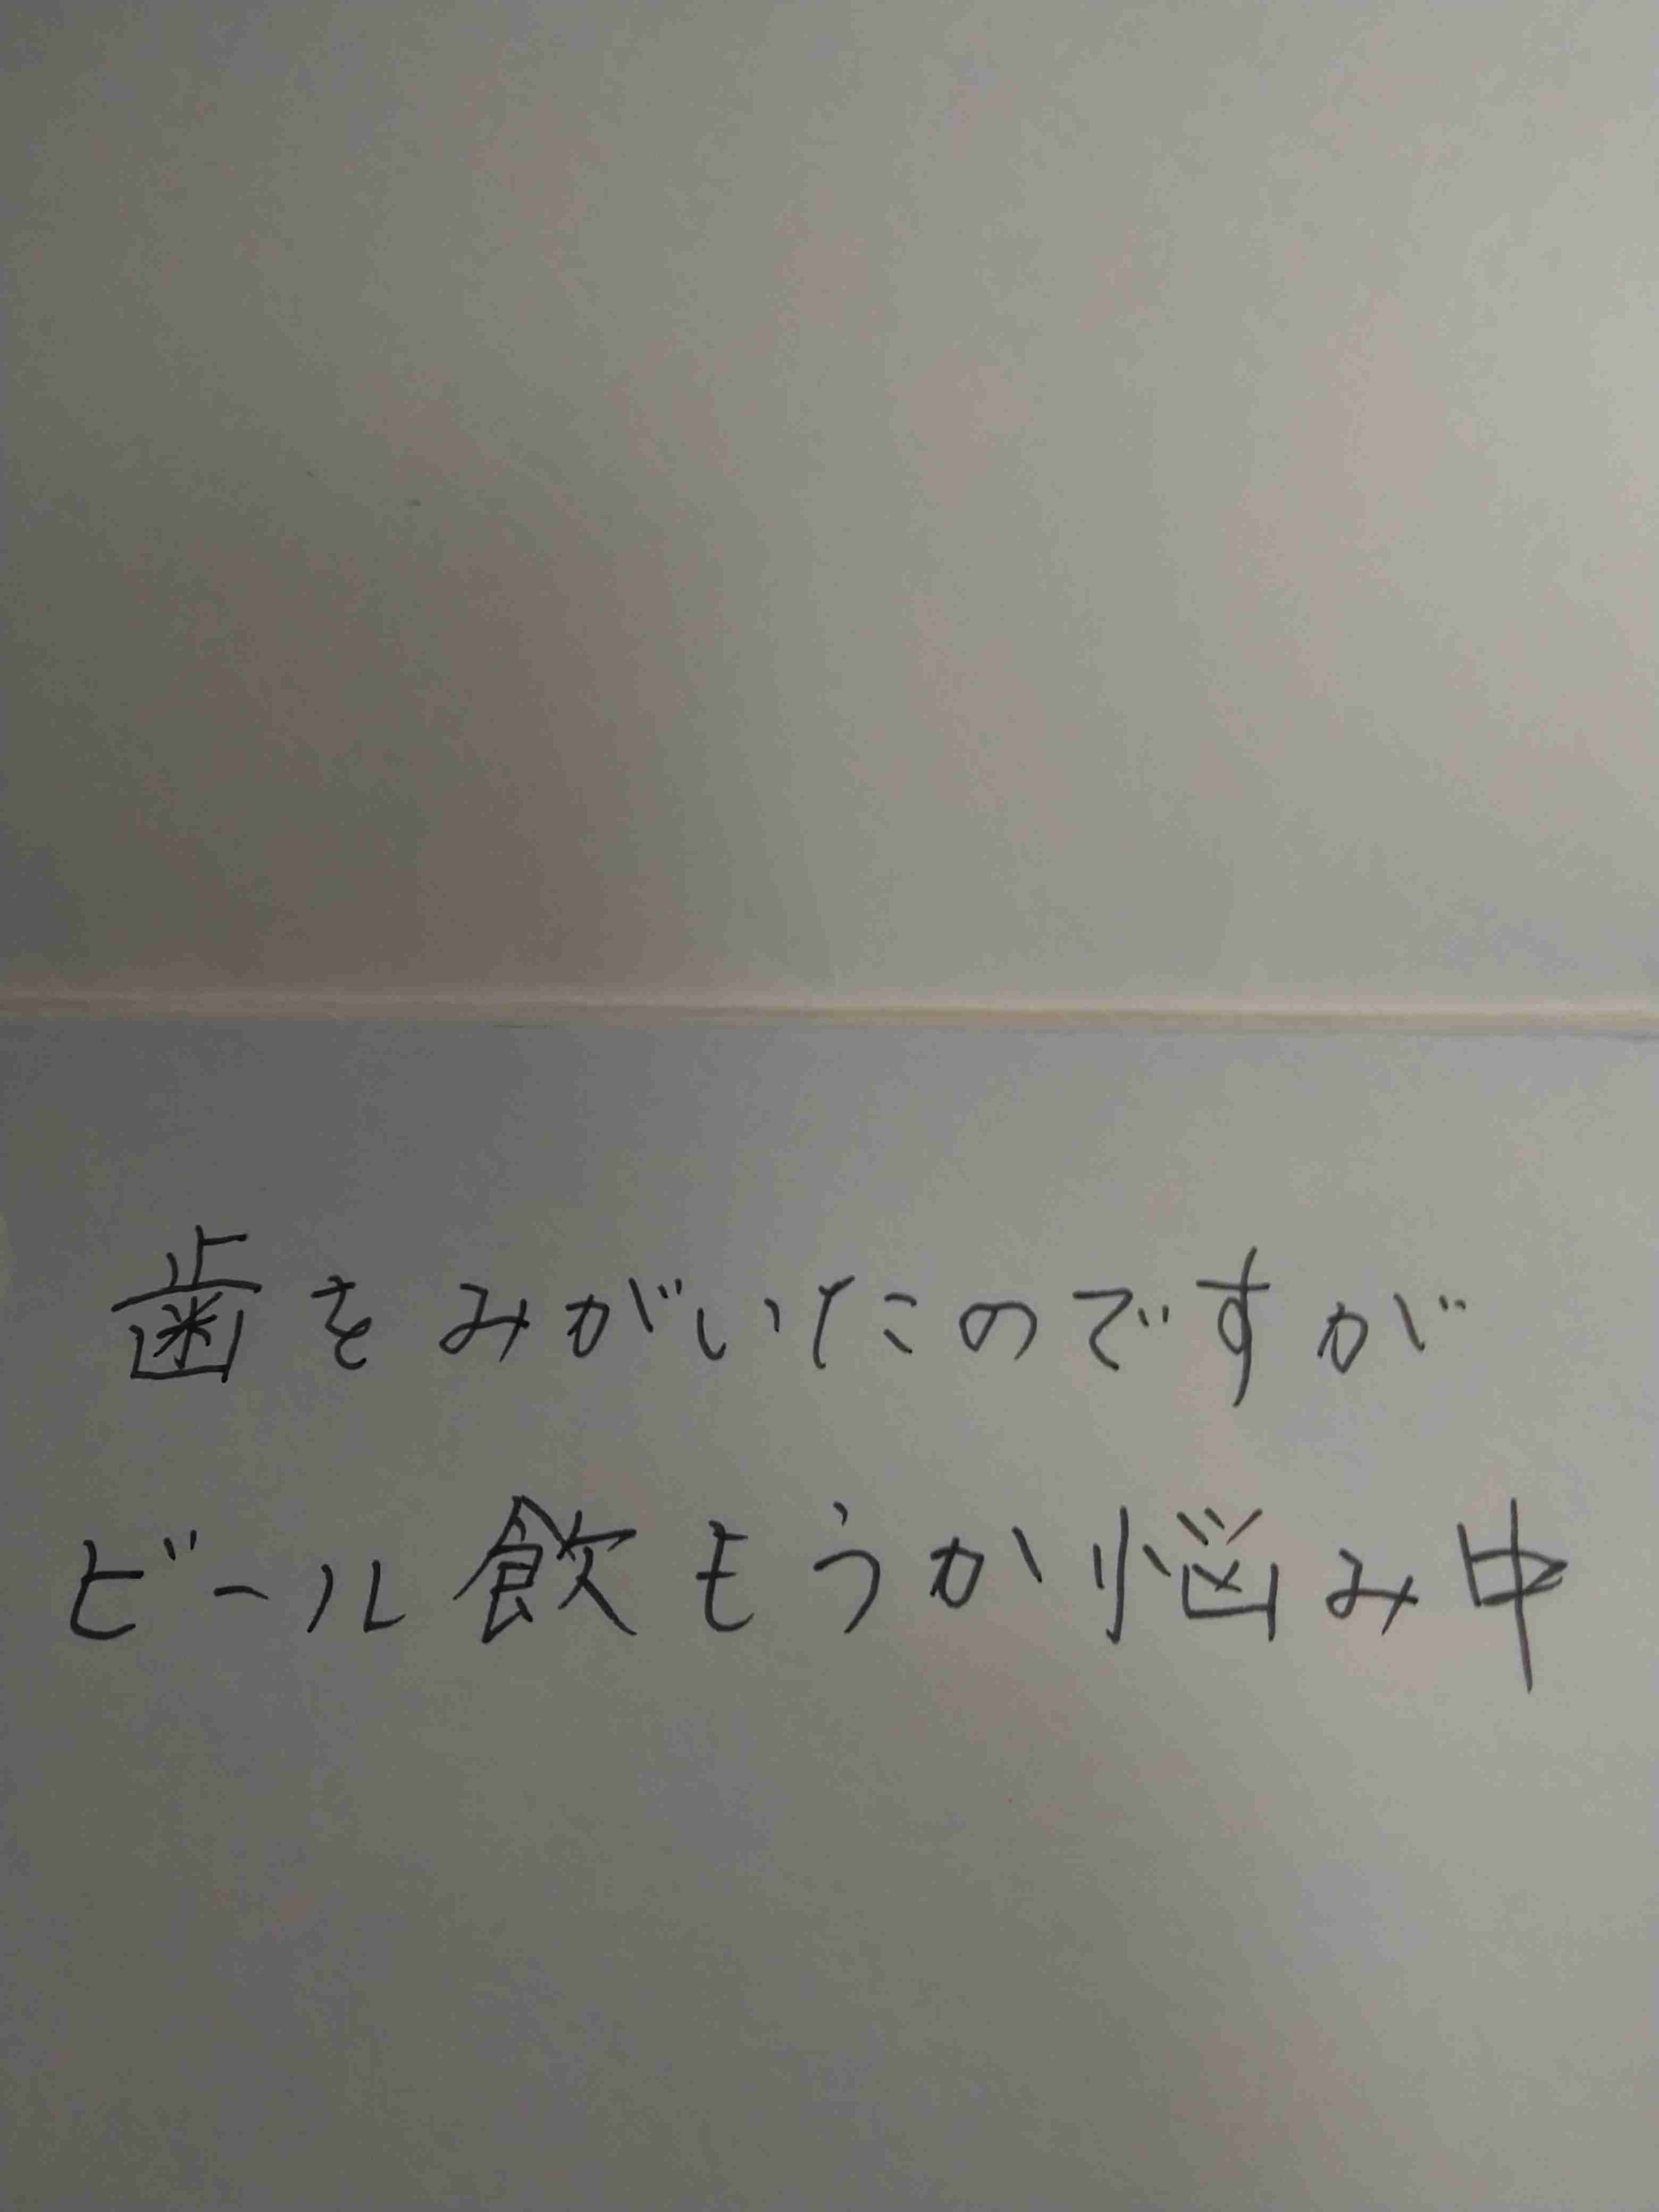 歯をみがいたのですが
ビール飲もうか悩み中